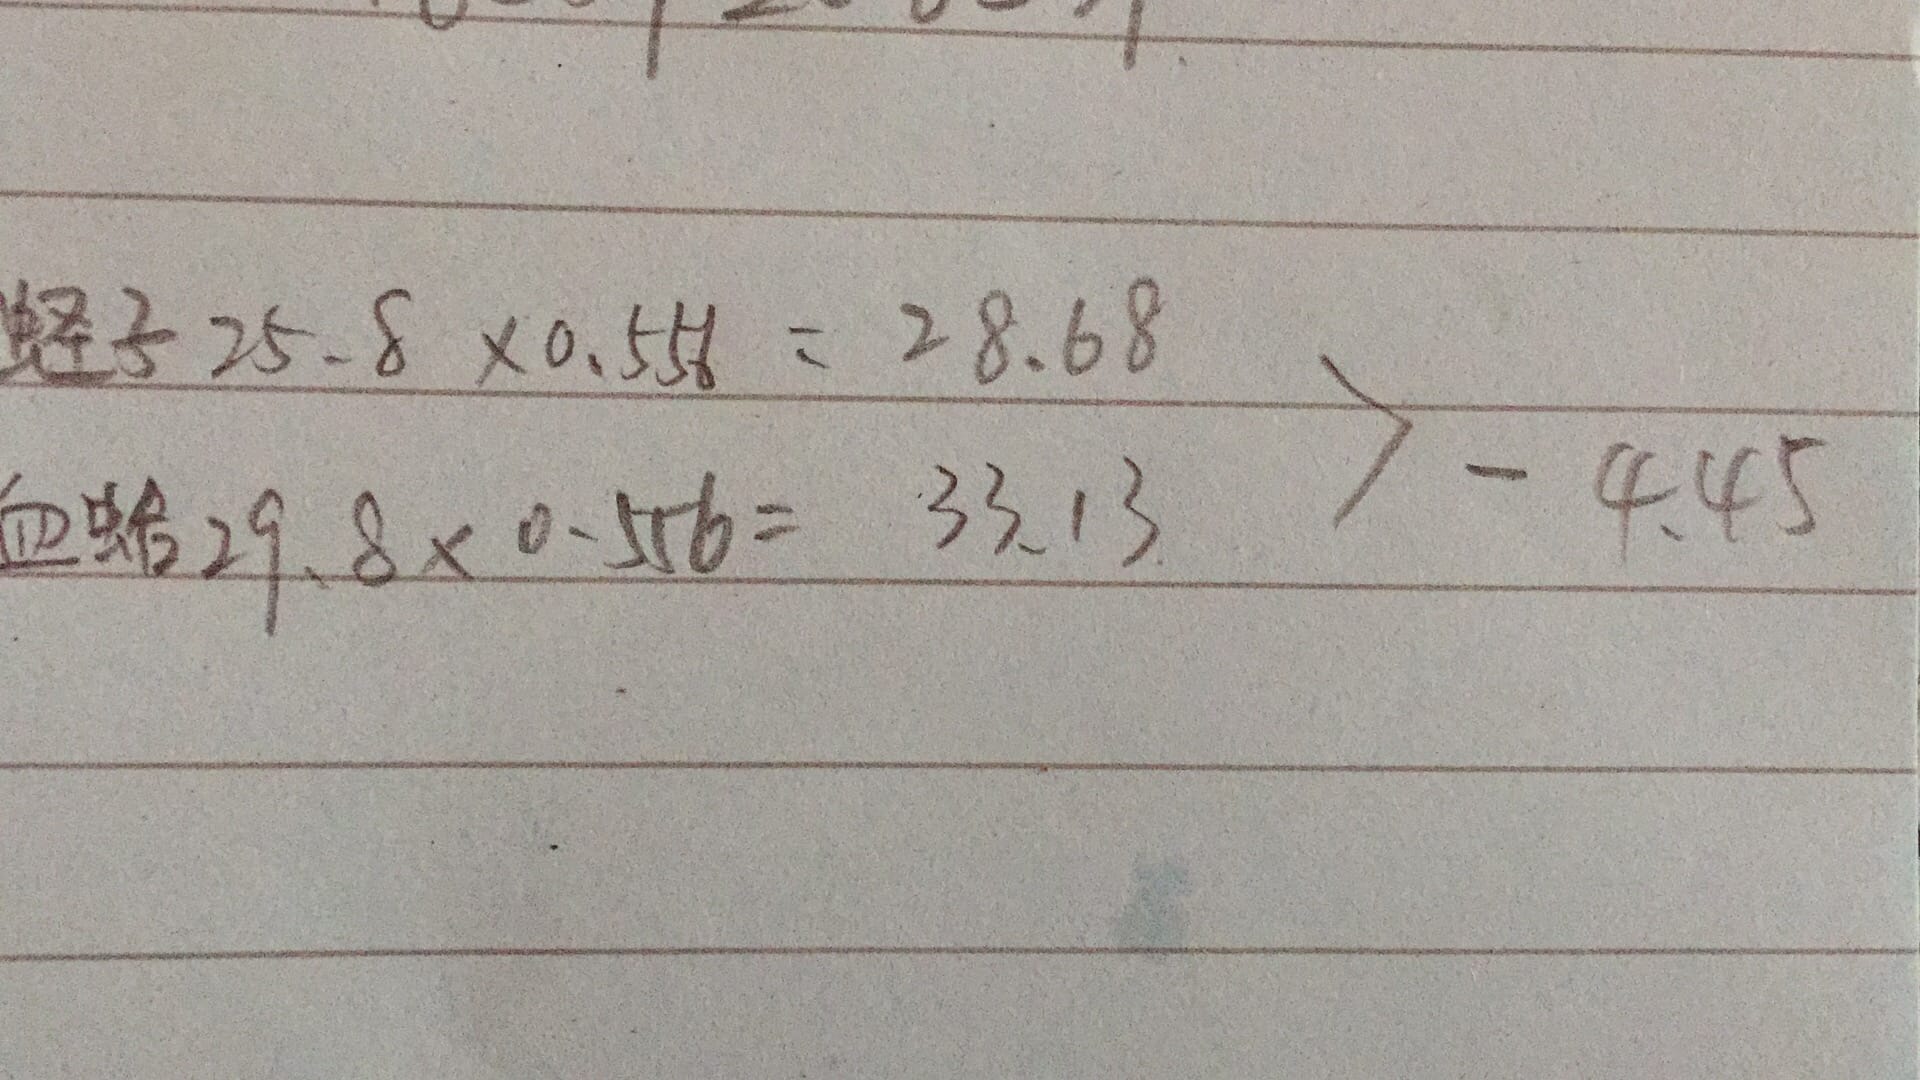 蛏子 25.8 × 0.556 = 28.68
血蛤 29.8 × 0.556 = 33.13
- 4.45